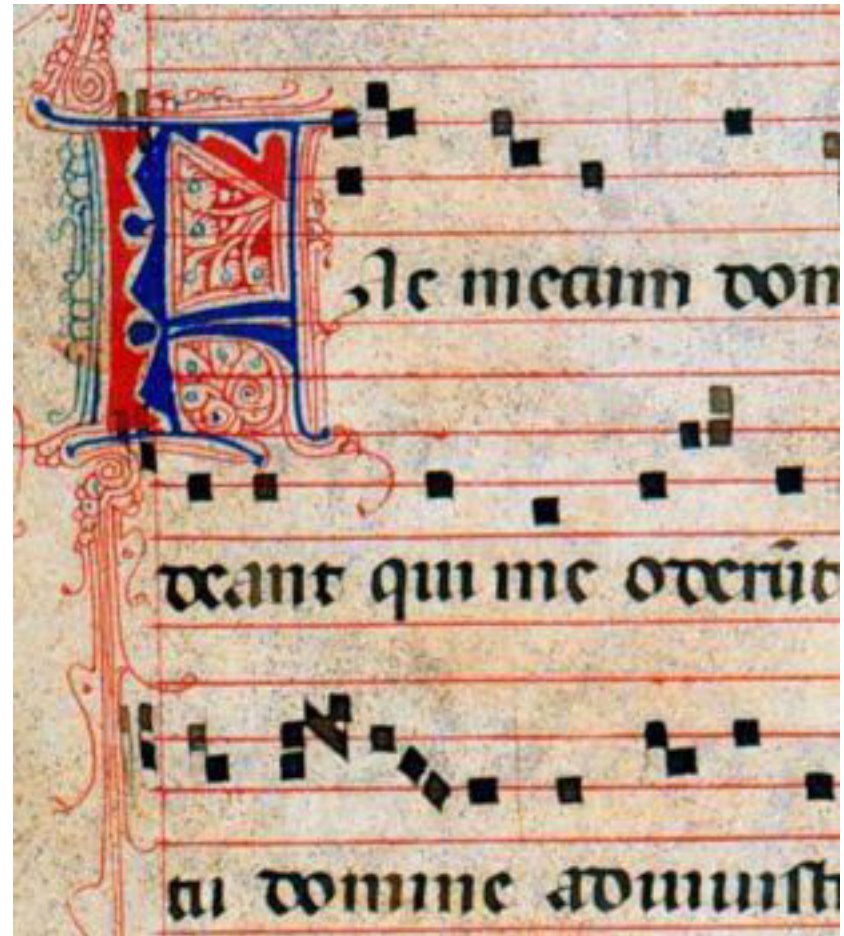 FAc mecum dom
deant qui me oderūt
tu domine adiuuist